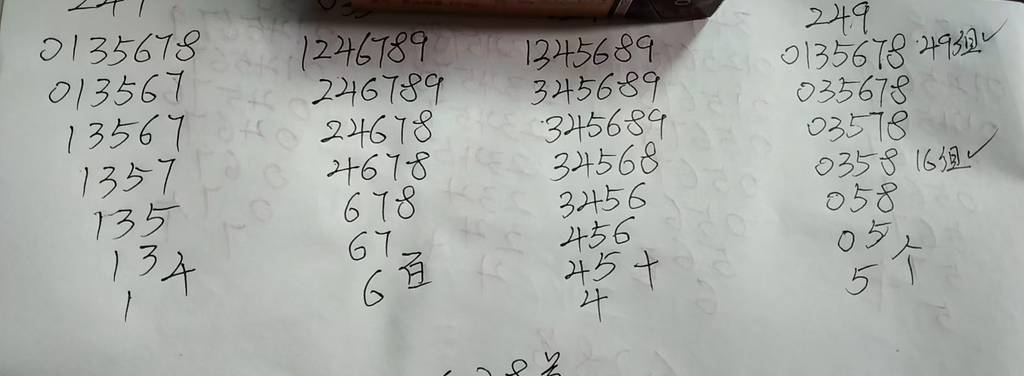 249
0135678 1246789 1345689 0135678 49组✓
013567 246789 345689 035678
13567 24678 345689 03578
1357 4678 34568 0358 16组✓
135 678 3456 058
13 千 67 百 456 05 个
1 6 45 十 5
4